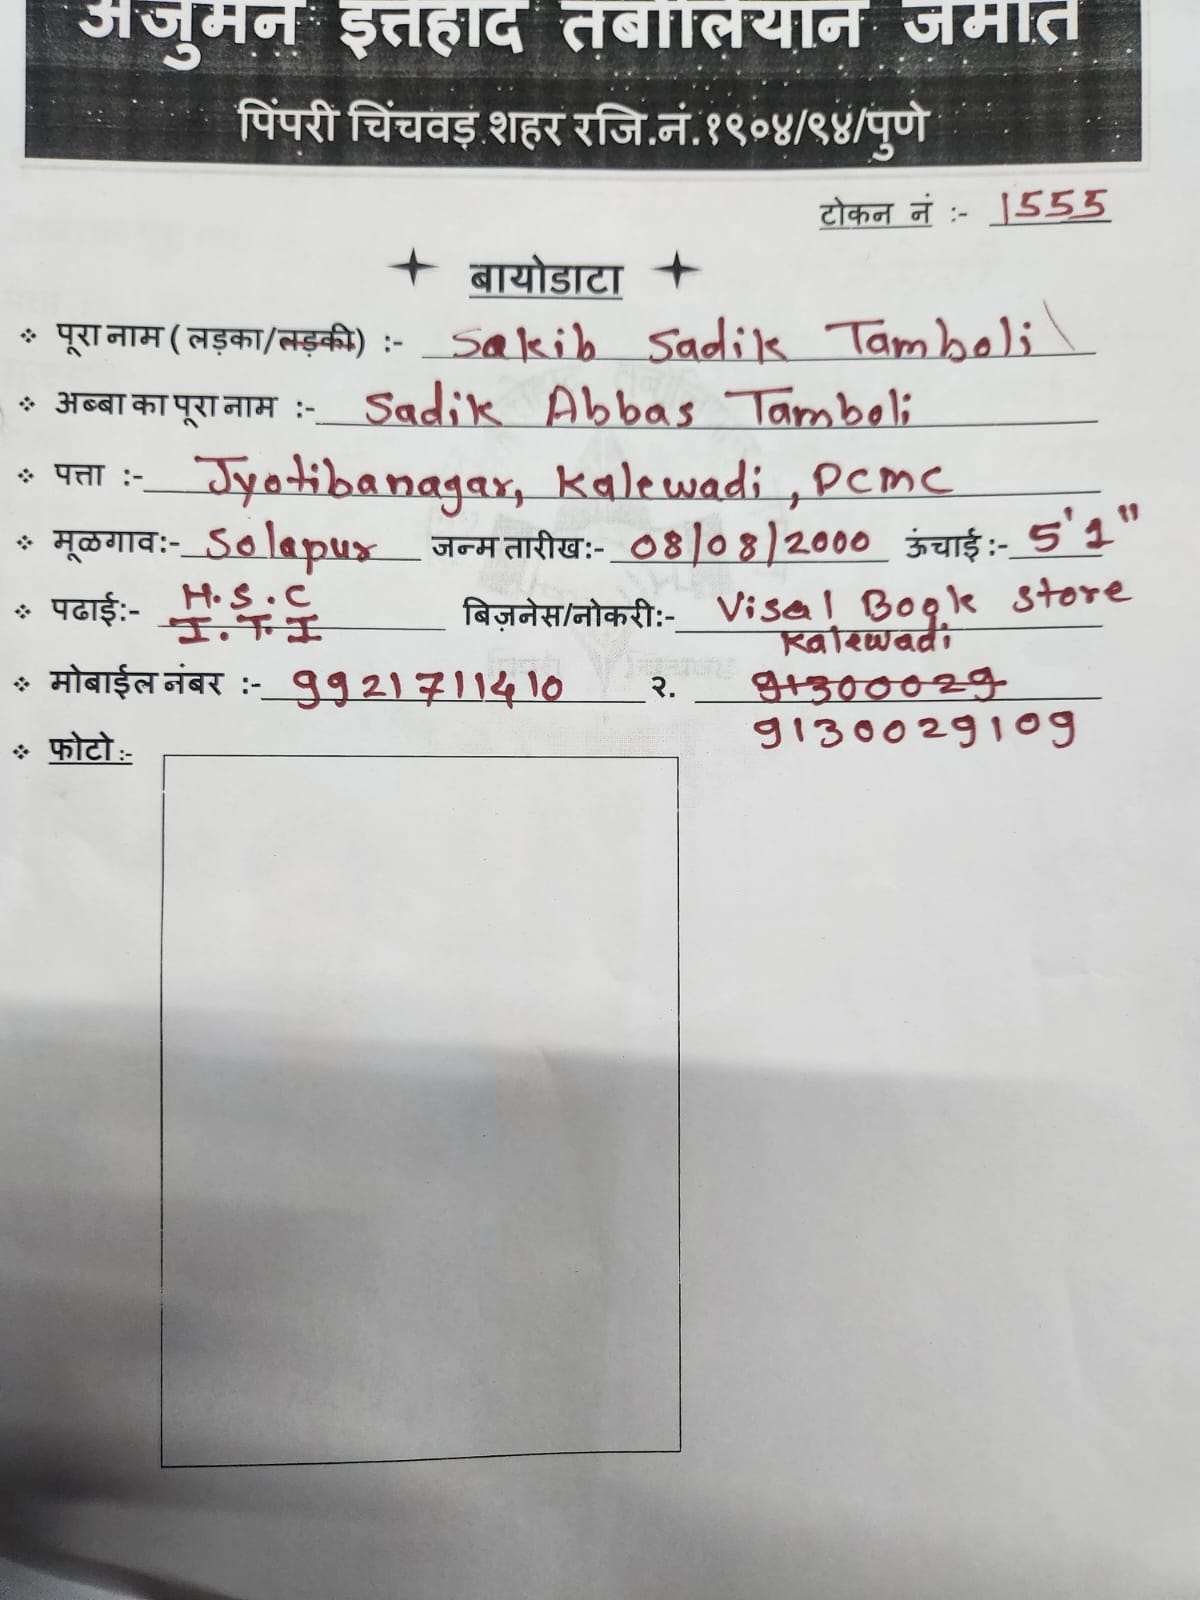 अंजुमन इत्तेहाद तंबोलियान जमात
पिंपरी चिंचवड शहर रजि.नं.१९०४/९४/पुणे
टोकन नं :- 1555
बायोडाटा
पूरा नाम ( लड़का/लड़की) :- Sakib Sadik Tamboli
अब्बा का पूरा नाम :- Sadik Abbas Tamboli
पत्ता :- Jyotibanagar, Kalewadi, PCMC
मूळगाव:- Solapur जन्म तारीख:- 08/08/2000 ऊंचाई:- 5'1"
पढाई:- H.S.C बिज़नेस/नोकरी:- Visal Book Store
I.T.I Kalewadi
मोबाईल नंबर :- 9921711410 २. 91300029
9130029109
फोटो:-